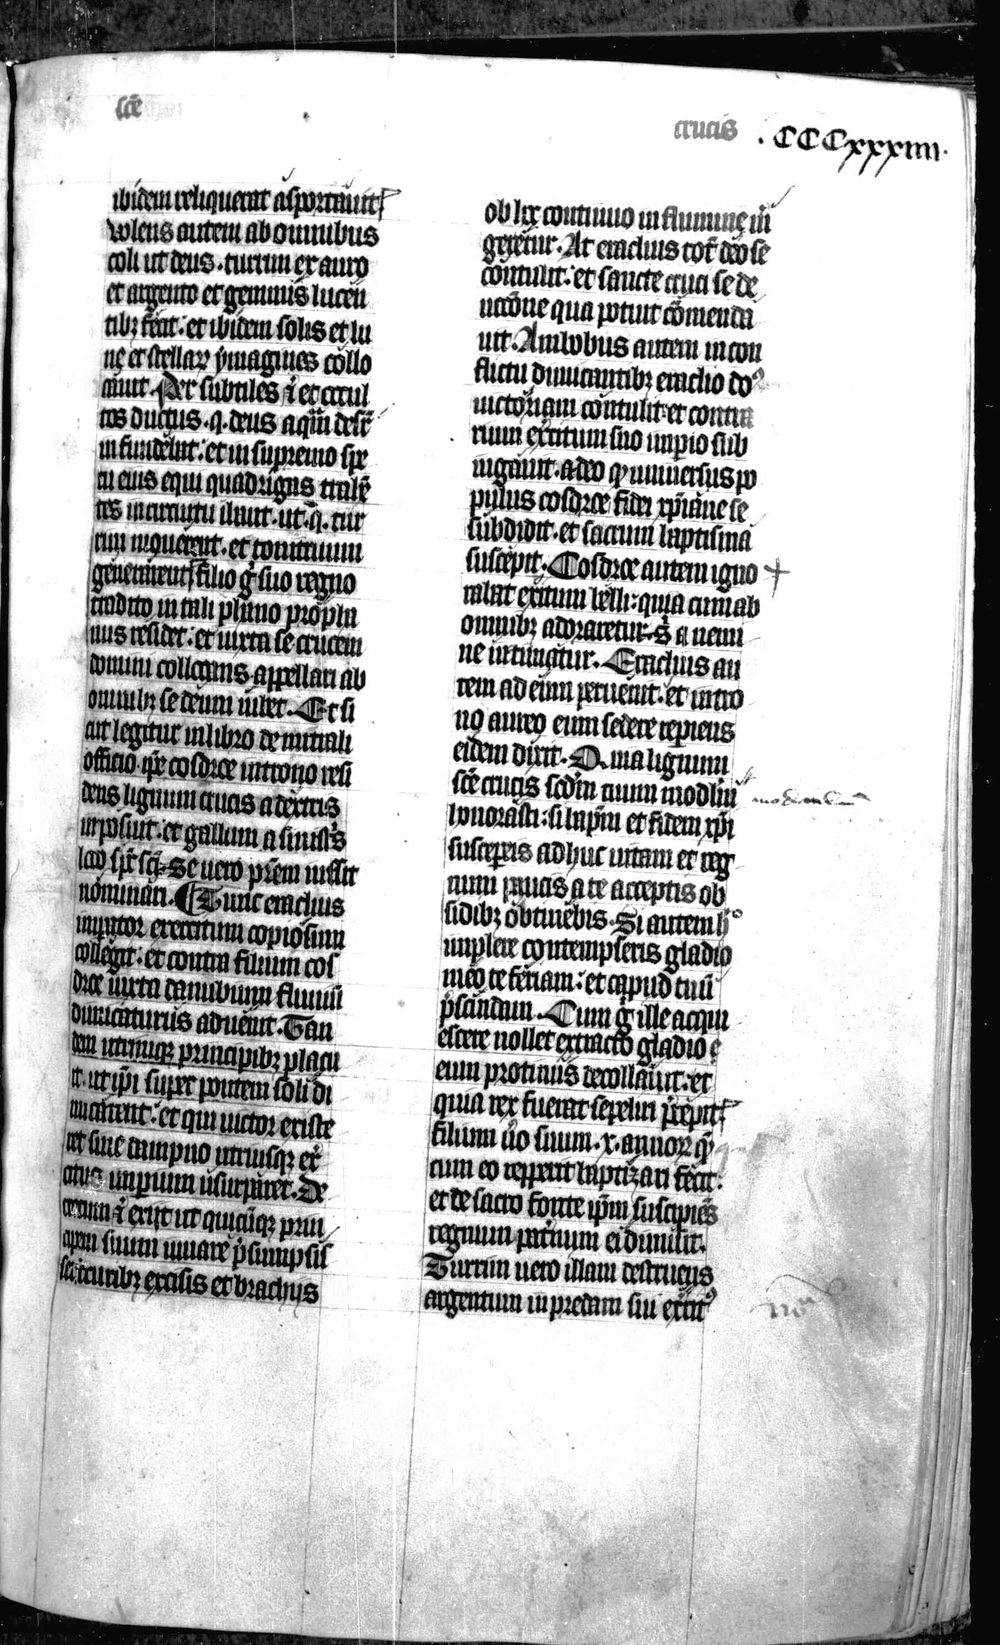 sc̄e
crucis .CCCxxxiiii.
ibidem reliquerat asportauit
volens autem ab omnibus
coli ut deus. turrim ex auro
et argento et gemmis lucen
tibꝫ fecit: et ibidem solis et lu
nę et stellaꝝ ymagines collo
cauit. Per subtiles .i. et occul
tos ductus .q. deus aquā desup̄
infundebat: et in supremo spe
cu eius equi quadrigas trahē
tes in circuitu ibant. ut .q. tur
rim mouerent. et tonitruum
generarent filio g̊ suo regno
tradito in tali phano propha
nus residet: et iuxta se crucem
domini collocans appellari ab
omnibꝫ se deum iubet. Et si
cut legitur in libro de mitrali
officio. ip̄e cosdroe in trono resi
dens lignum crucis a dextris
in posuit: et gallum a sinist̄s
loco sp̄s sc̄i. Se uero pr̄em iussit
nominari. Tunc eraclius
imperator exercitum copiosum
collegit: et contra filium cos
droe iuxta danubium fluuiū
dimicaturus aduenit. Tan
dem utrinꝙ principibꝫ placu
it. ut ip̄i super pontem soli di
micarent: et qui uictor existe
ret sine dampno utriusqꝫ ex̄
citus imperium usurparet. De
cretum .i. exiit ut quicūqꝫ prin
cipem suum iuuare p̄sumpsis
set: cruribꝫ excisis et brachijs
ob hoc continuo in flumine im̄
gęretur. At eraclius tot̄ deo se
contulit: et sancte cruci se de
uotiōne qua potuit cōmenda
uit. Ambobus autem in con
flictu dimicantibꝫ eraclio doꝰ
uictoriam contulit et contra
rium exercitum suo imp̄io sub
iugauit. adeo ꝙ uniuersus po
pulus cosdroe fidei xp̄iane se
subdidit. et sacrum baptisma
suscepit. Cosdroe autem igno
rabat exitum belli: quia cum ab
omnibꝫ adoraretur. s̄ a nemi
ne intimatur. Eraclius au
tem ad eum peruenit. et in tro
no aureo eum sedere reperiens
eidem dixit. Quia lignum
sc̄e crucis sc̄dm̄ tuum modulū
honorasti: si baptis̄m et fidem xp̄i
susceperis adhuc uitam et reg
num paucis a te acceptis ob
sidibꝫ obtinebis. Si autem hͦ
implere contempseris gladio
meo te feriam: et caput tuū
p̄scindam. Cum g̊ ille acqui
escere nollet extracto gladio
eum protinus decollauit: et
quia rex fuerat sepeliri p̄cepit
filium ūo suum .x. annoꝝ qm̄
cum eo repperit baptizari fecit:
et de sacro fonte ip̄m suscipiēs
regnum patrium ei dimisit.
Turrim uero illam destruens
argentum in predam sui ex̄citꝰ